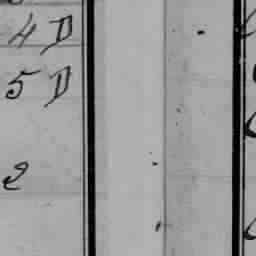 4 D
5 D
2